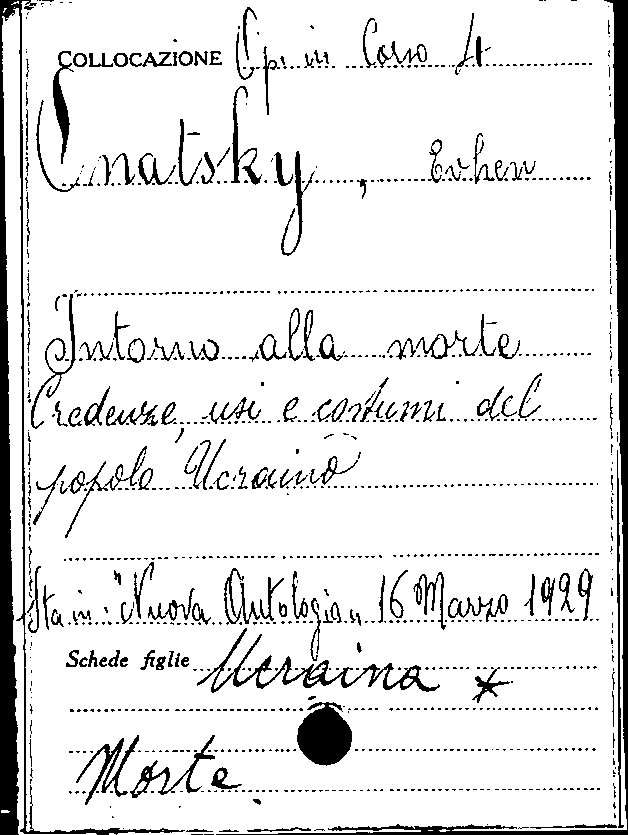 COLLOCAZIONE Op. in Corso 4
Onatsky, Evhen
Intorno alla morte
Credenze, usi e costumi del
popolo Ucraino
Sta in: "Nuova Antologia„ 16 Marzo 1929
Schede figlie Ucraina *
Morte.